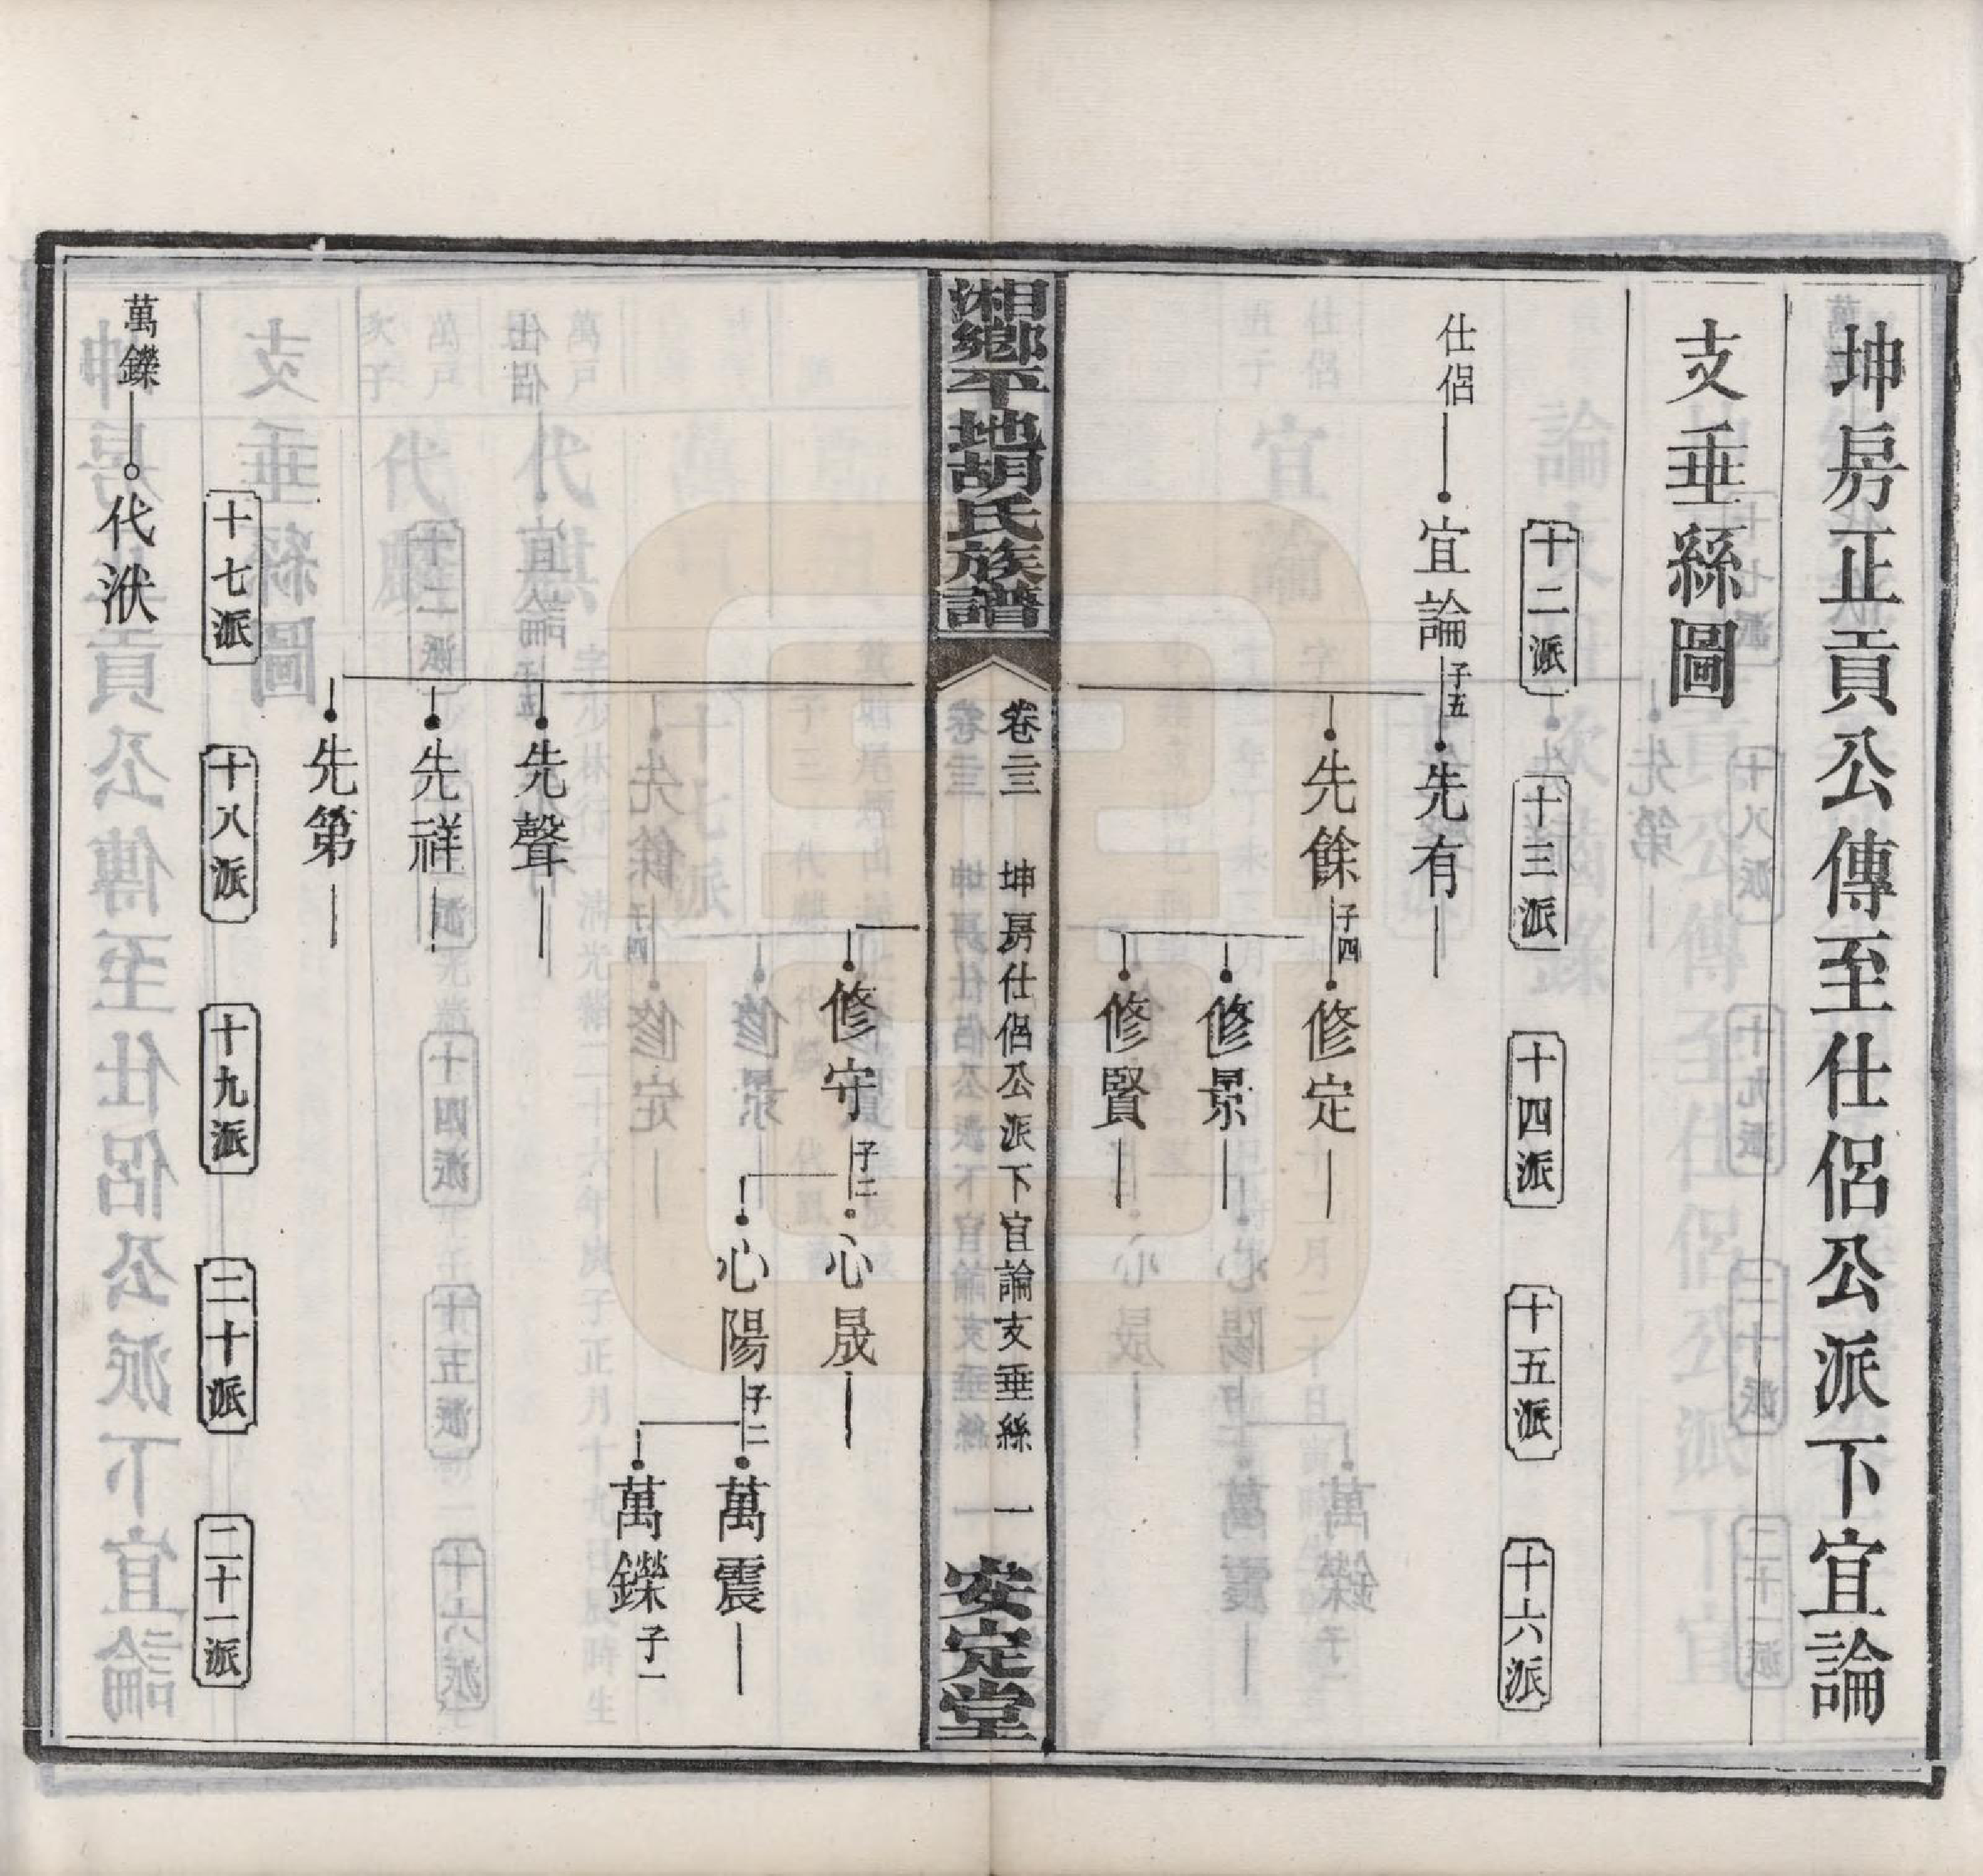 坤房正貢公傳至仕侶公派下宜論
支垂絲圖
十二派
十三派
十四派
十五派
十六派
仕侶
宜論
子五
先有
先餘
子四
修定
修景
修賢
湘鄉平地胡氏族譜
卷三 坤房仕侶公派下宜論支垂絲 一
安定堂
修守
子二
心晟
心陽
子二
萬震
萬鑠
子一
先聲
先祥
先第
十七派
十八派
十九派
二十派
二十一派
萬鑠
代洑